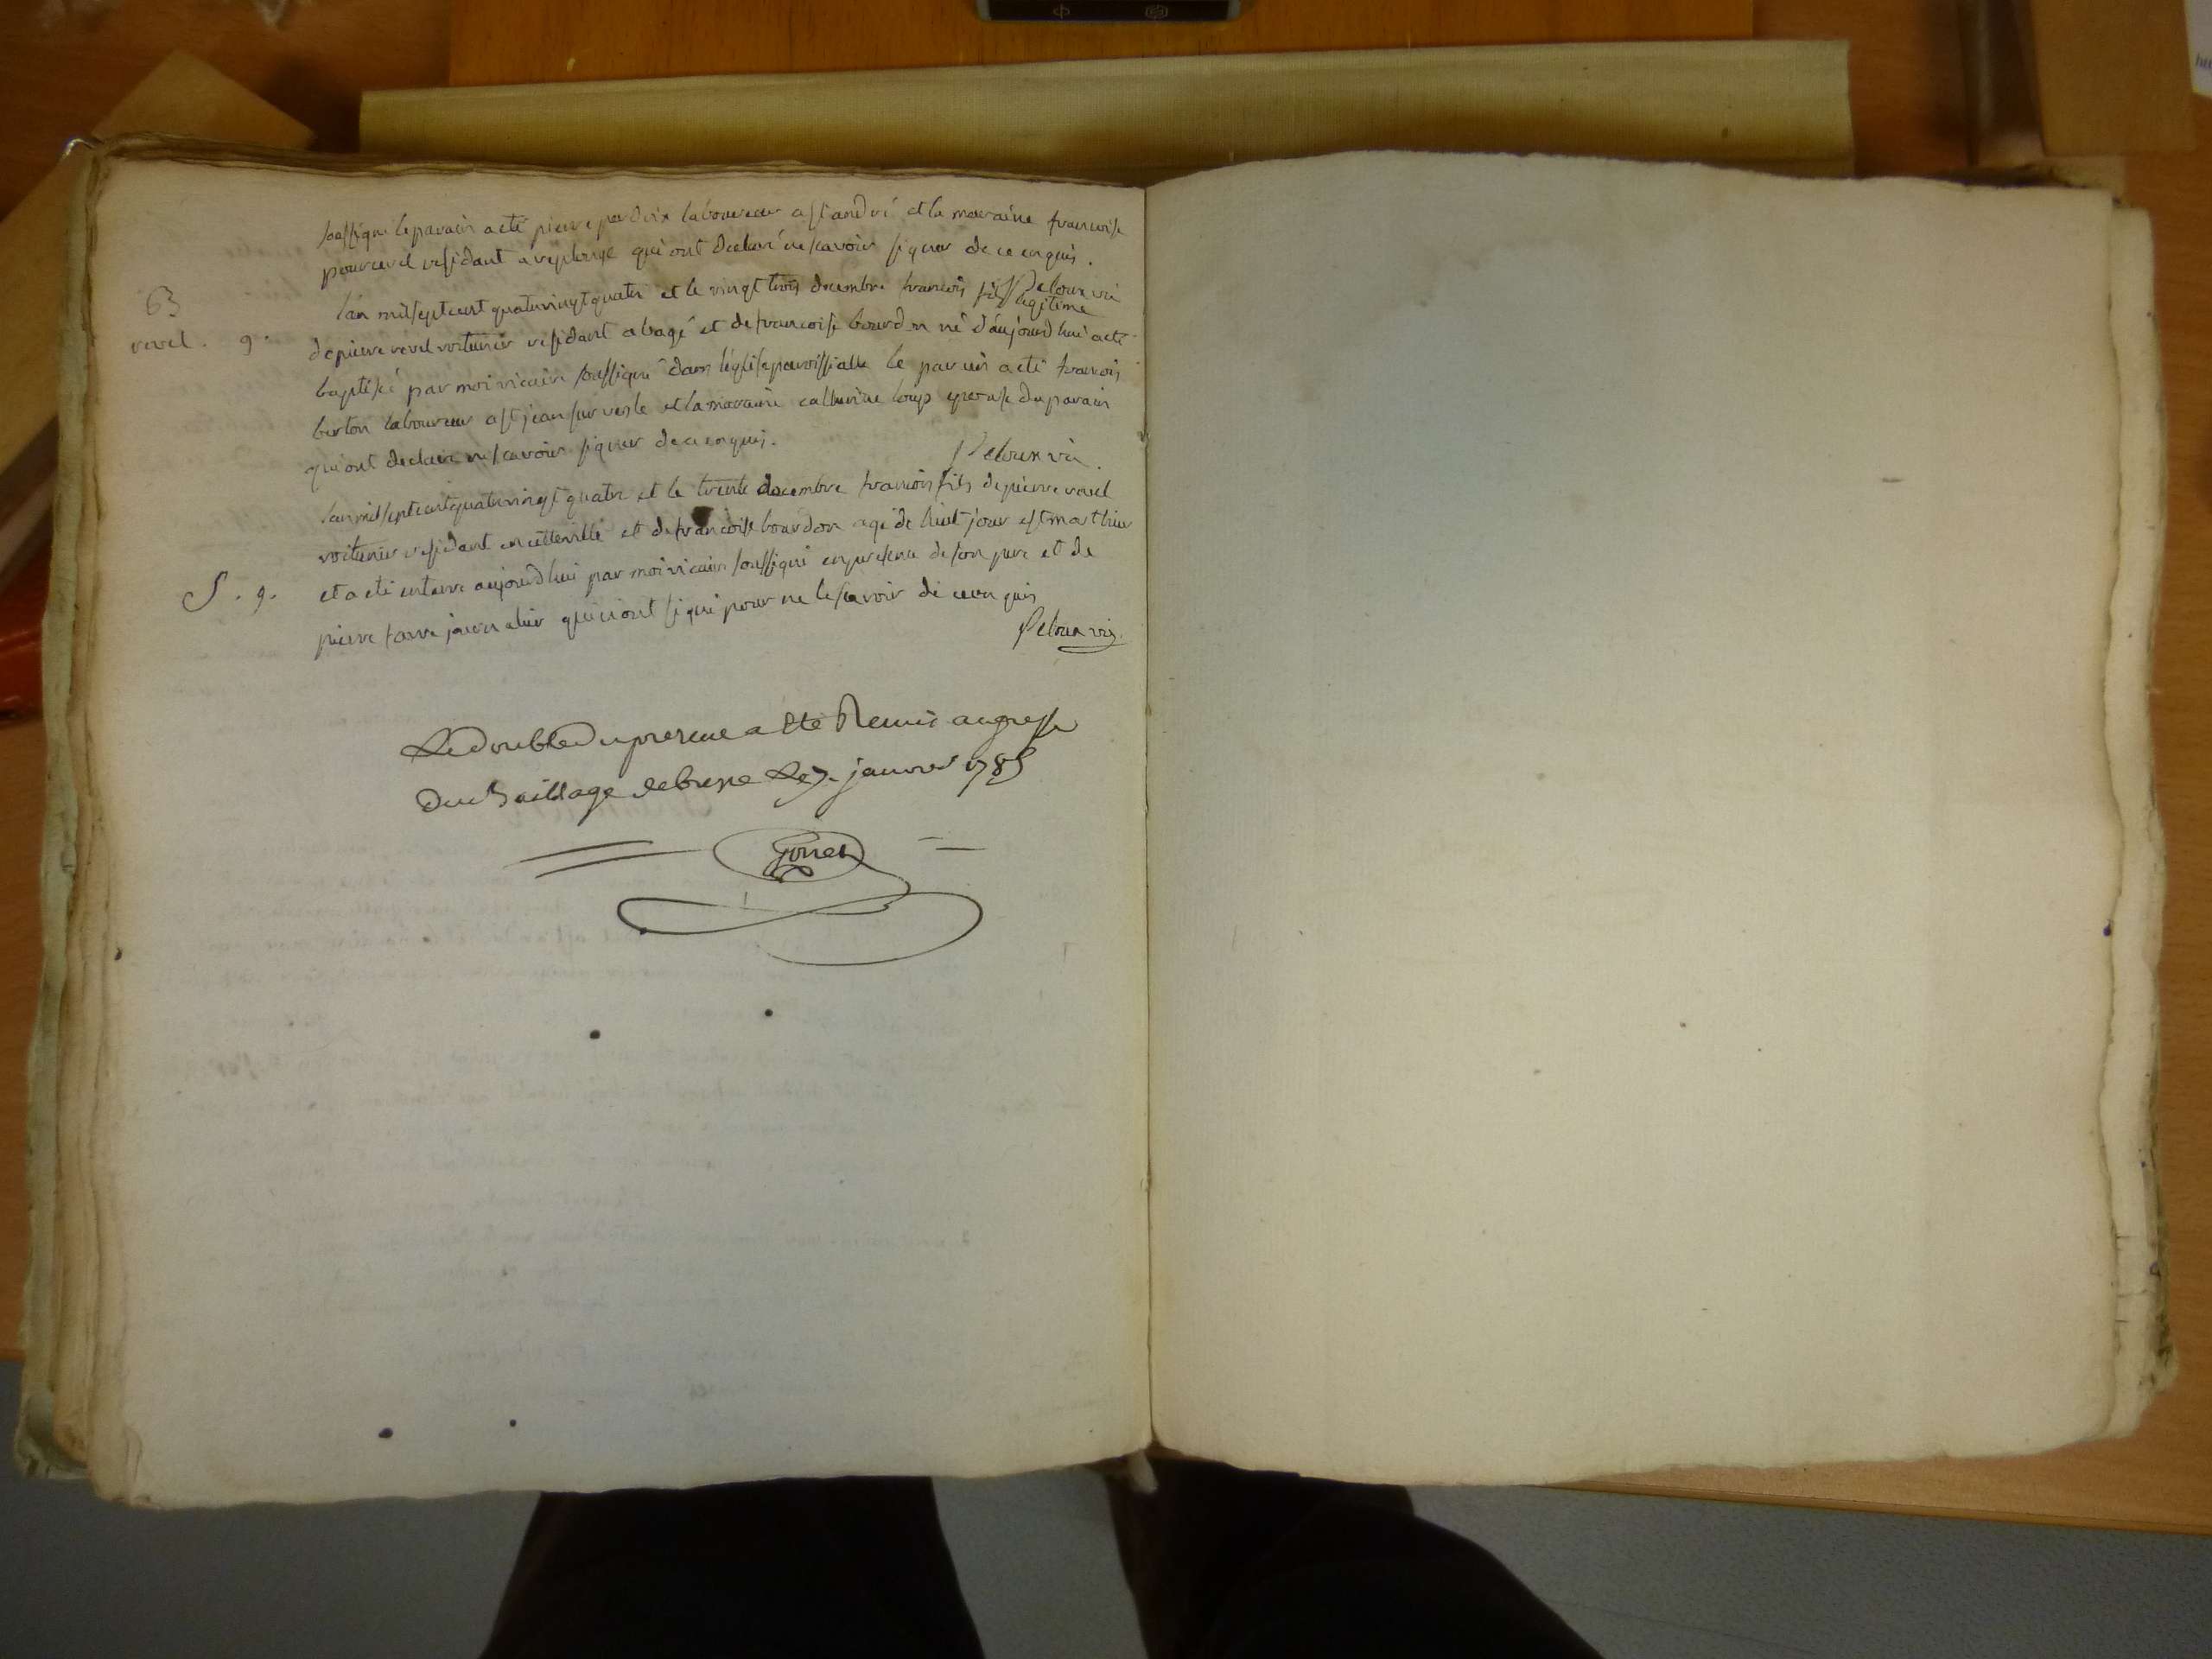 soussigné le parain a eté pierre perdrix laboureur a st andré et la maraine francoise
pourcevel residant a replonge qui ont declaré ne scavoir signer de ce enquis.
Peloux vic
63
revel. g.
l'an mil sept cent quatre vingt quatre et le vingt trois decembre francois fils legitime
de pierre revel voiturier residant a bagé et de francoise bourdon né d'aujourd'hui a eté
baptisé par moi vicaire soussigné dans l'église paroissialle le parain a eté francois
berton laboureur a st jean sur vesle et la maraine catherine loup epouse du parain
qui ont declaré ne scavoir signer de ce enquis.
Peloux vic.
l'an mil sept cent quatre vingt quatre et le trente decembre francois fils de pierre revel
voiturier residant en cette ville et de francoise bourdon agé de huit jour est mort hier
S. g.
et a eté enterré aujourd'hui par moi vicaire soussigné en presence de son pere et de
pierre journalier qui n'ont signé pour ne le scavoir de ce enquis
Peloux vic.
Le double du present a Eté Remis au greffe
Du Bailliage de bresse Le 7. janvier 1785
Gonet